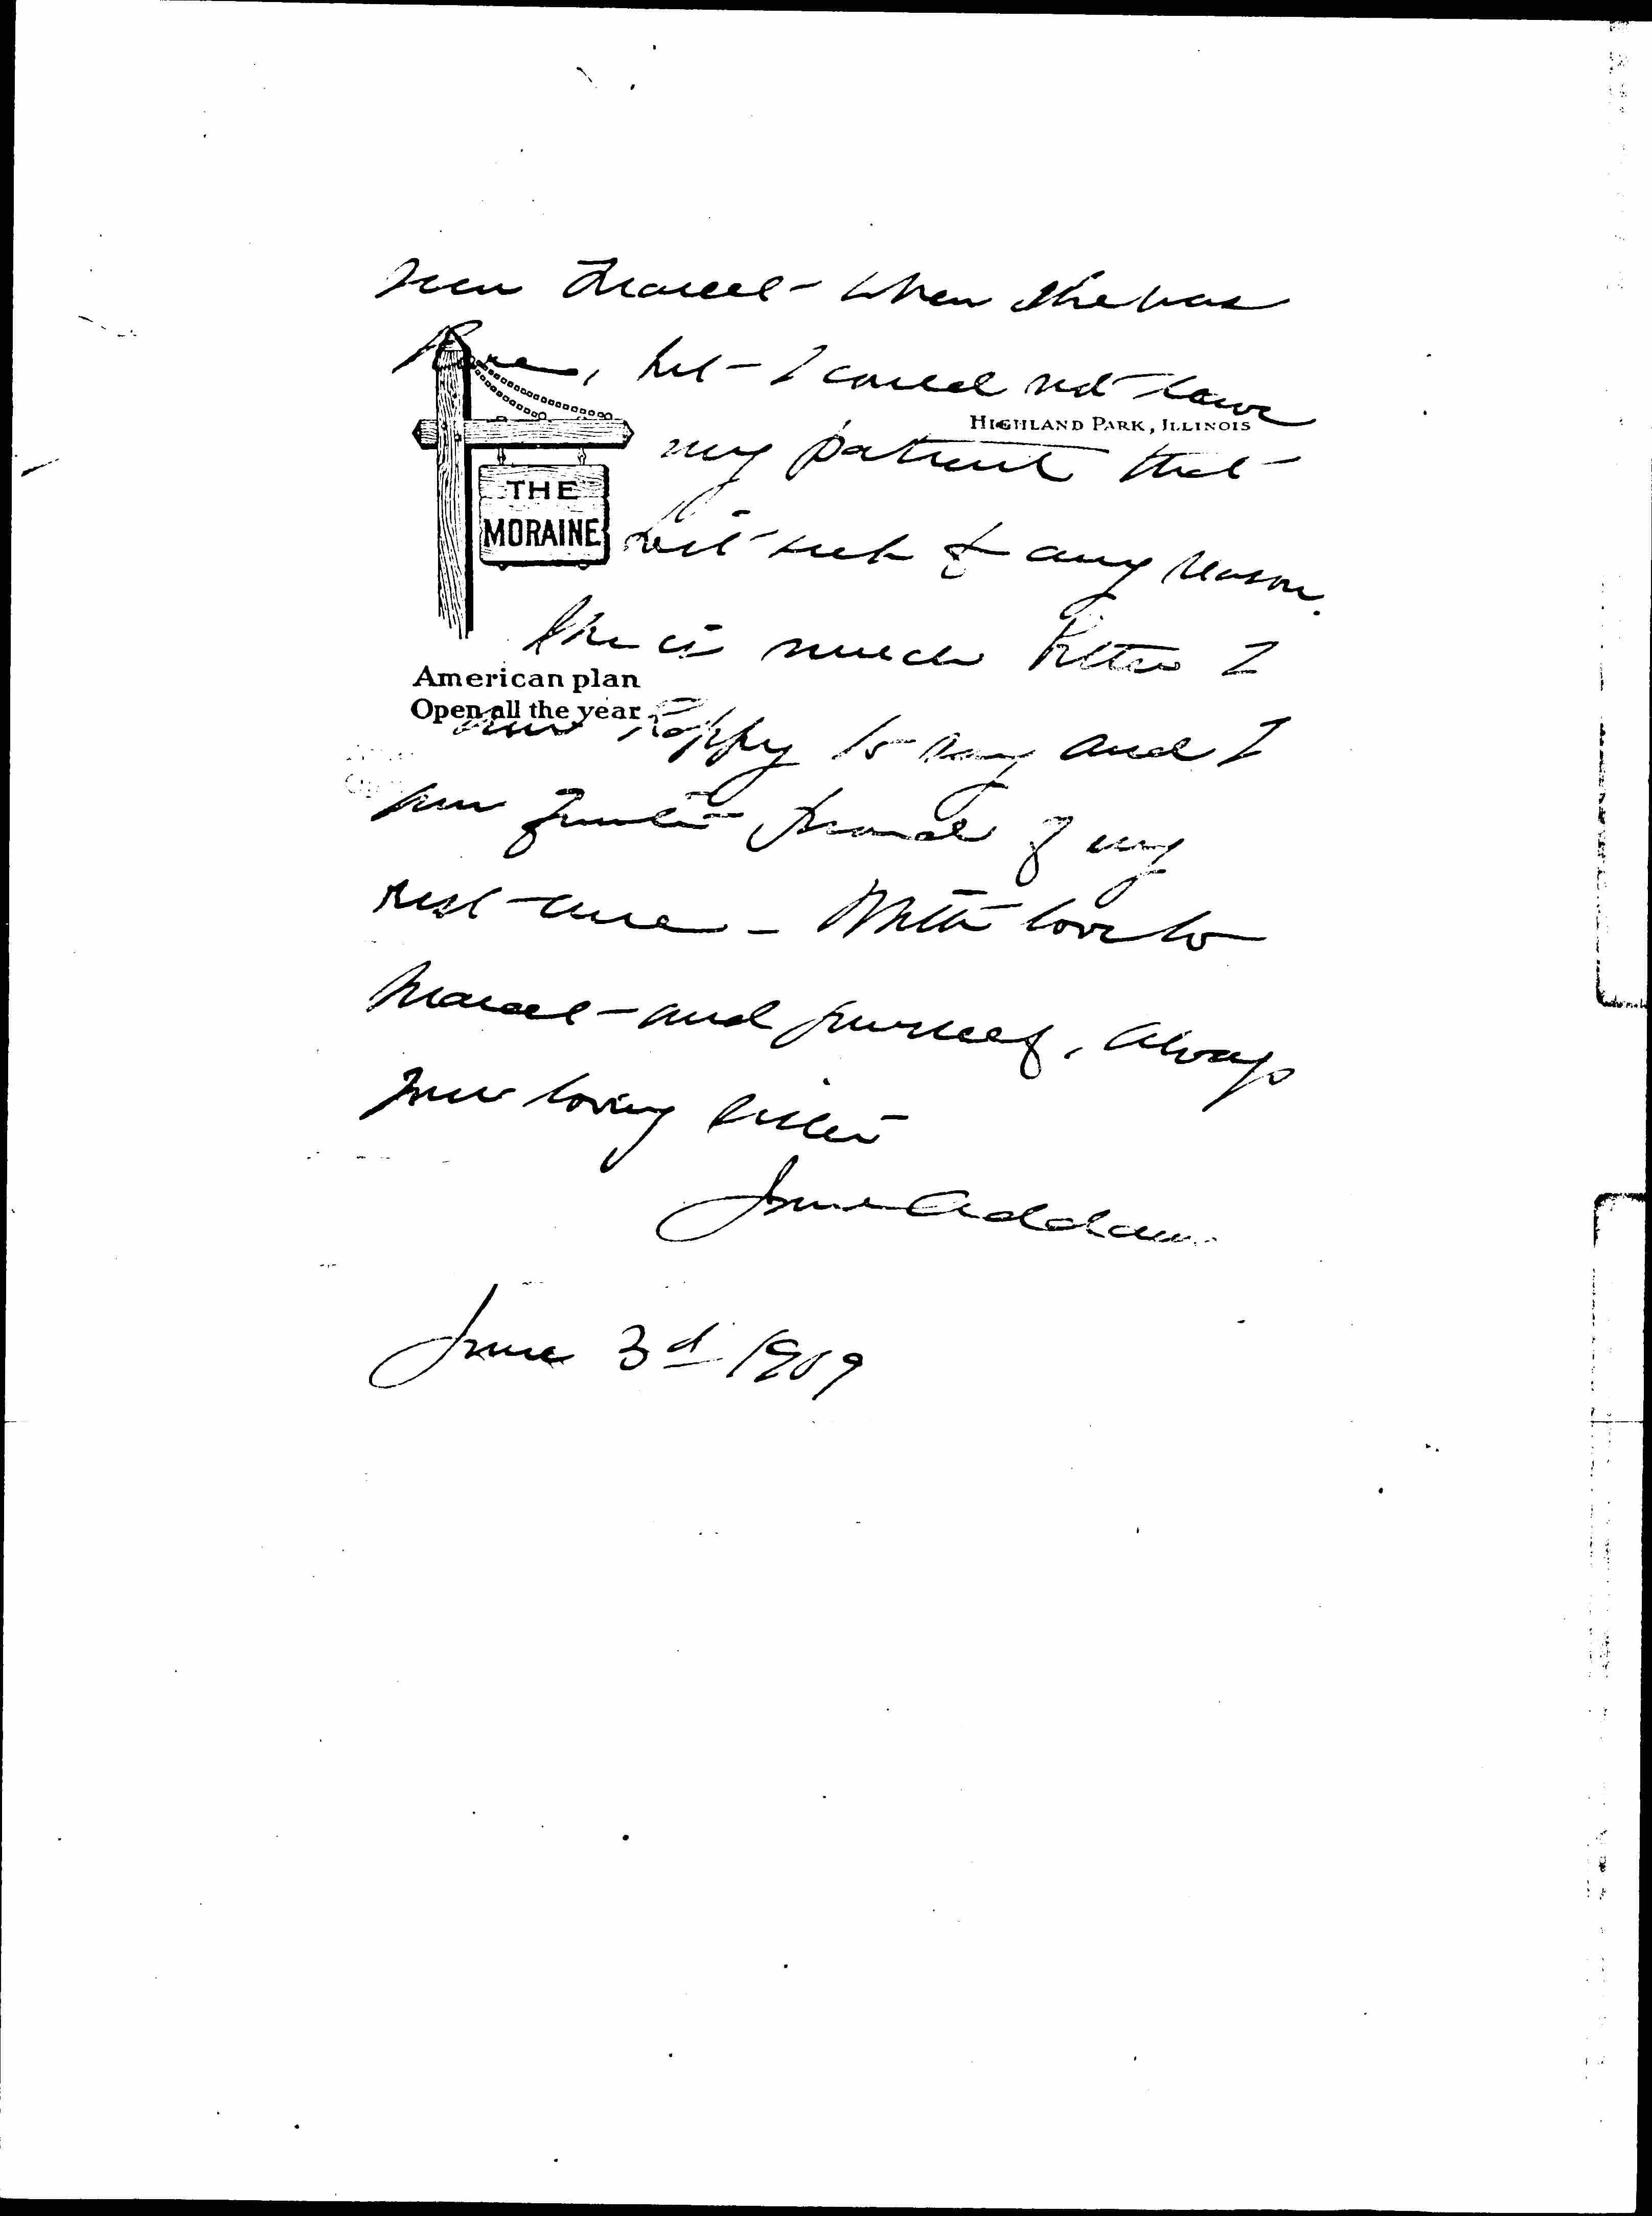 seen Marcet when she was
here, but I could not leave
HIGHLAND PARK, ILLINOIS
my patient that
THE
MORAINE
week for any reason.
She is much better I
American plan
Open all the year
am happy to say and I
am quite proud of my
rest-cure - With love to
Marcet and yourself, always
your loving sister
Jane Addams
June 3d 1909